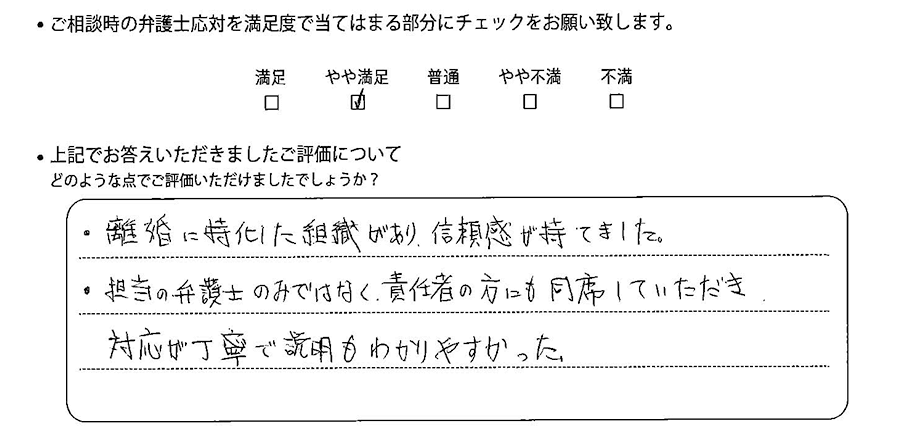 • ご相談時の弁護士応対を満足度で当てはまる部分にチェックをお願い致します。
満足 やや満足 普通 やや不満 不満
□ ☑ □ □ □
• 上記でお答えいただきましたご評価について
どのような点でご評価いただけましたでしょうか？
• 離婚に特化した組織があり、信頼感が持てました。
• 担当の弁護士のみではなく、責任者の方にも同席していただき、
対応が丁寧で説明もわかりやすかった。